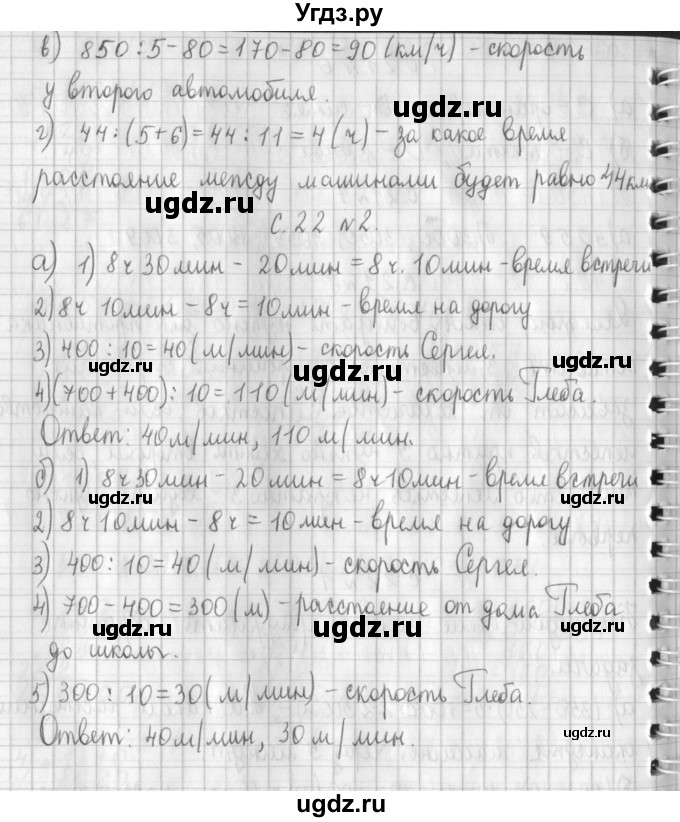 Угдз.ру
в) 850:5-80=170-80=90 (км/ч) - скорость
у второго автомобиля.
ugdz.ru
г) 44:(5+6)=44:11=4(ч) - за какое время
расстояние между машинами будет равно 44км
ugdz.ru
с. 22 №2.
а) 1) 8ч 30мин - 20мин = 8ч. 10мин - время встречи
2) 8ч 10мин - 8ч = 10мин - время на дорогу
3) 400:10=40(м/мин) - скорость Сергея.
ugdz.ru ugdz.ru ugdz.ru
4) (700+400):10=110(м/мин) - скорость Глеба.
Ответ: 40м/мин, 110м/мин.
б) 1) 8ч30мин - 20мин = 8ч10мин - время встречи
ugdz.ru ugdz.ru
2) 8ч10мин - 8ч = 10мин - время на дорогу
3) 400:10=40(м/мин) - скорость Сергея.
4) 700-400=300(м) - расстояние от дома Глеба
ugdz.ru ugdz.ru ugdz.ru
до школы.
5) 300:10=30(м/мин) - скорость Глеба.
Ответ: 40м/мин, 30м/мин.
ugdz.ru
ugdz.ru
ugdz.ru